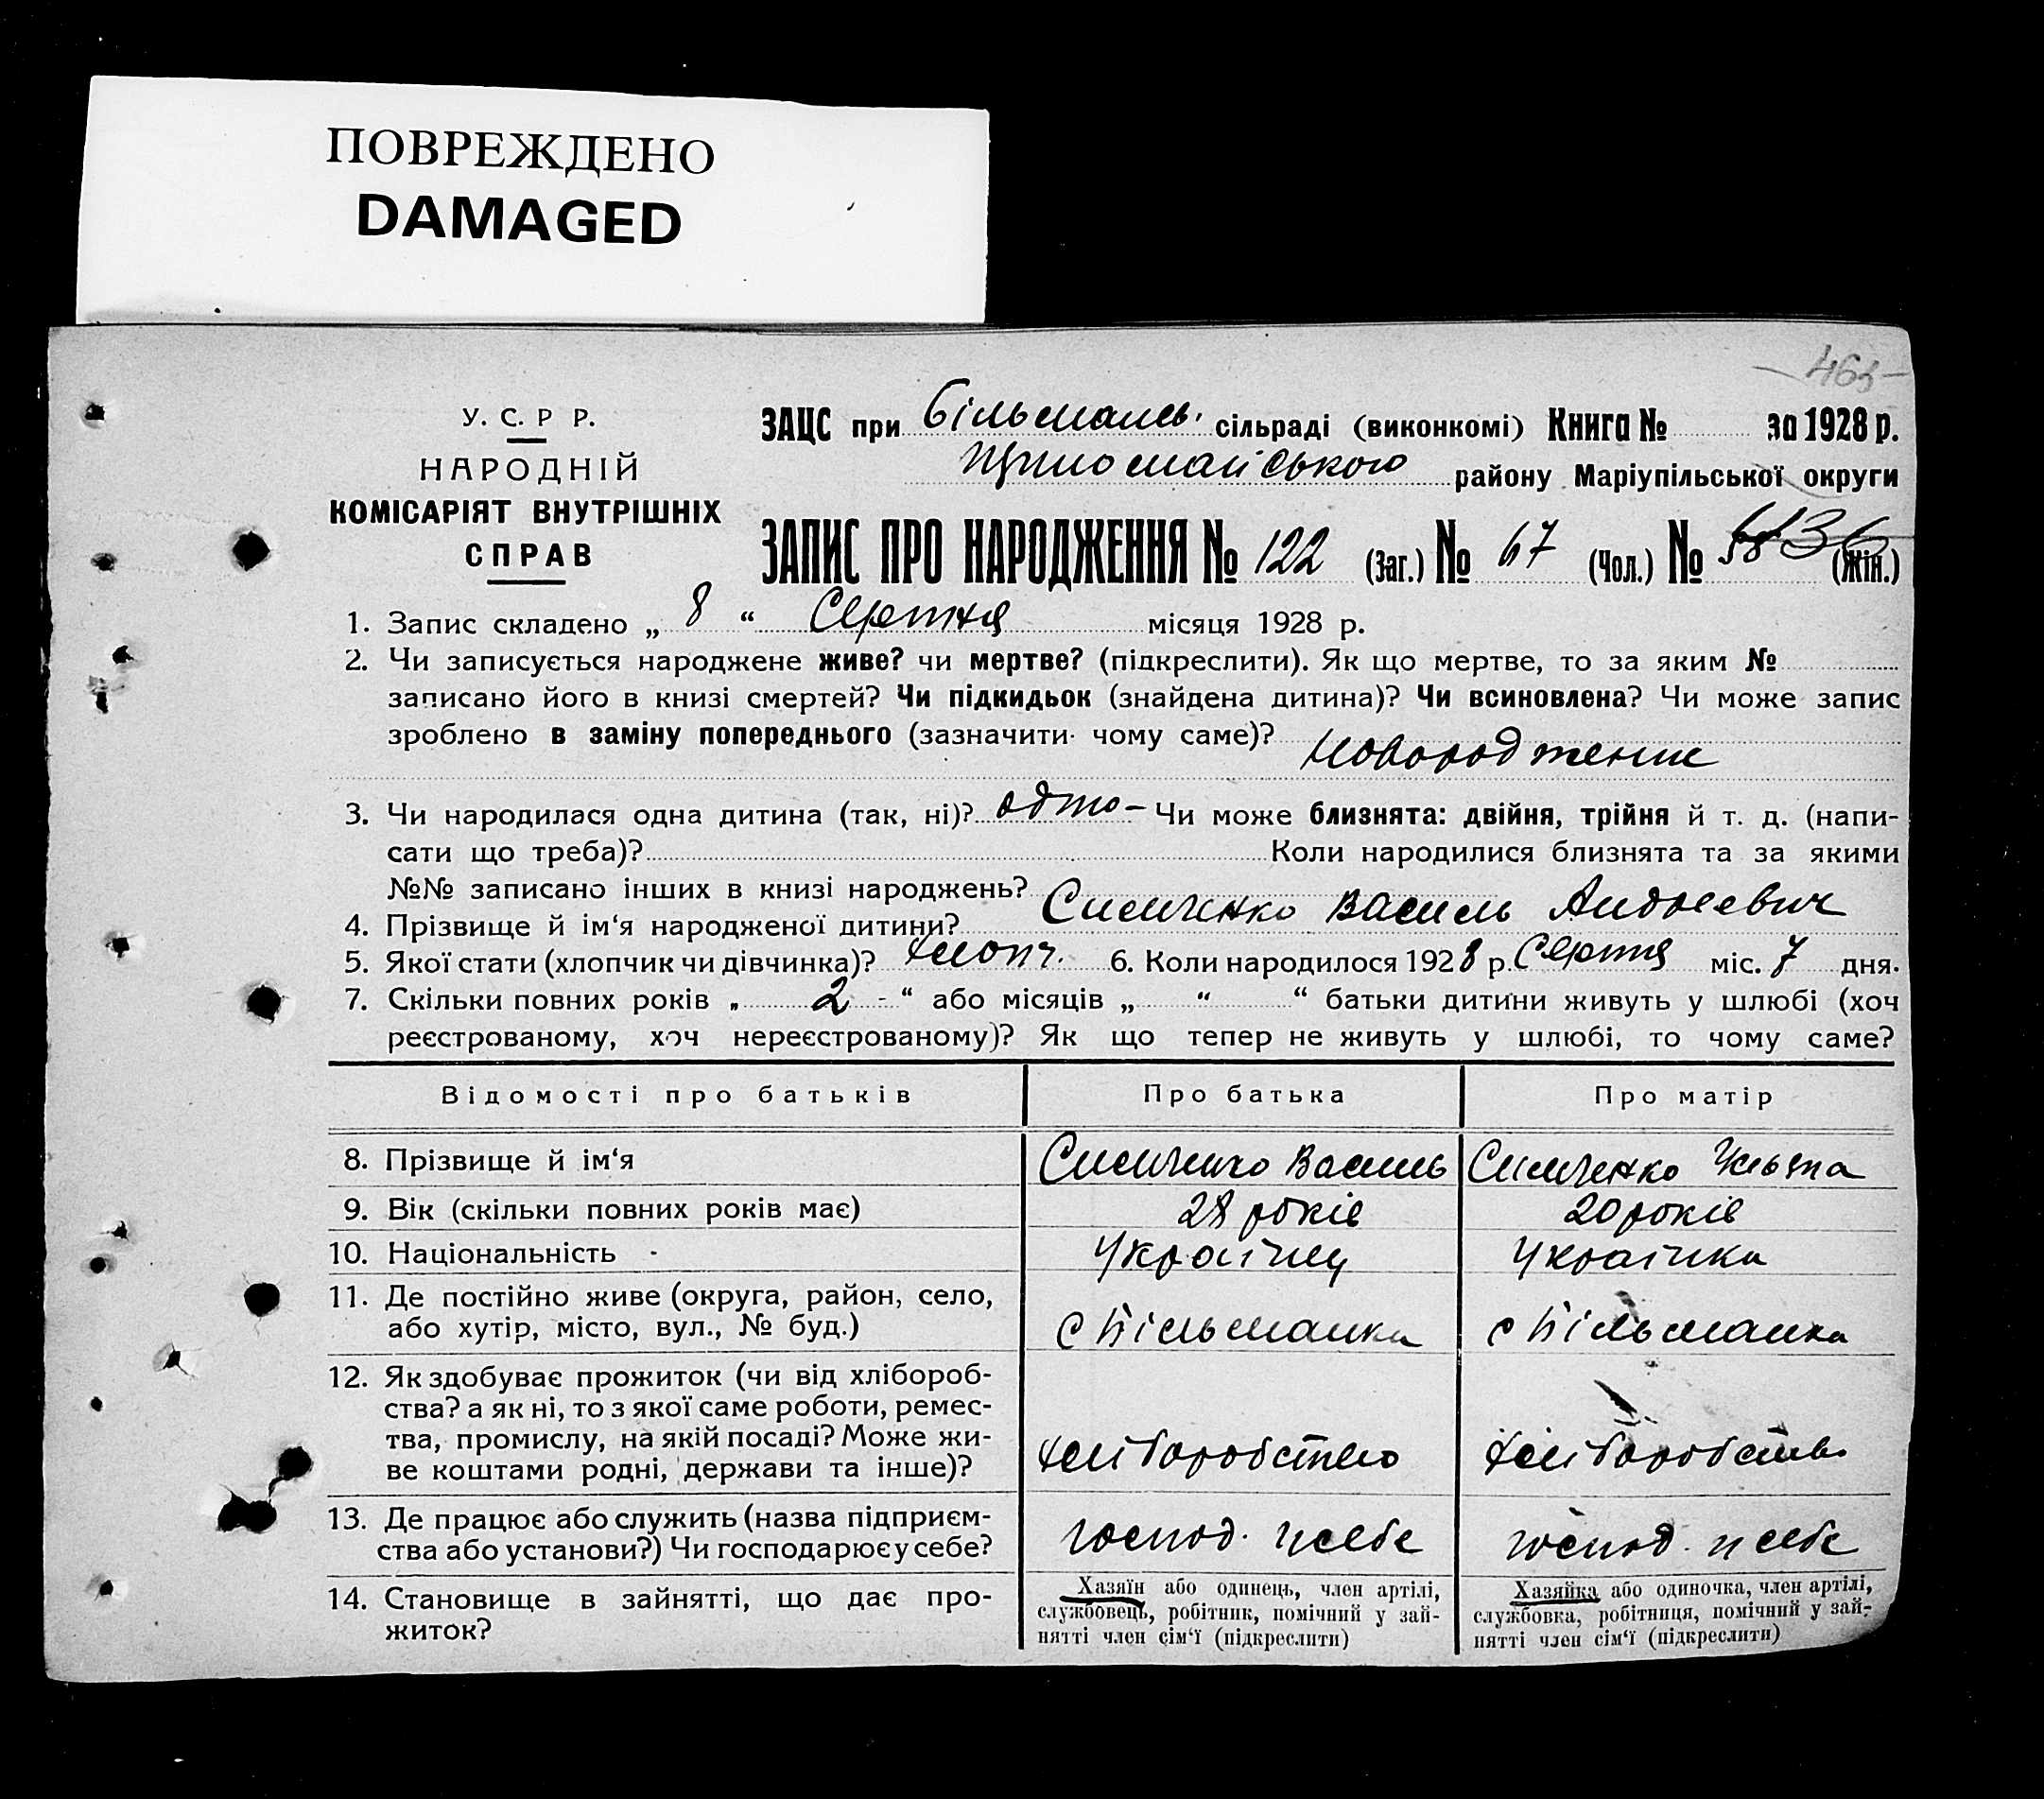 ПОВРЕЖДЕНО
DAMAGED
465
У. С. Р Р.
НАРОДНІЙ
КОМІСАРІЯТ ВНУТРІШНІХ
СПРАВ
ЗАЦС при Більмансь. сільраді (виконкомі) Книга № за 1928 р.
району Маріупільської округи
ЗАПИС ПРО НАРОДЖЕННЯ № 122 (Заг.) № 67 (Чол.) № (Жін.)
1. Запис складено „ 8 “ Серпня місяця 1928 р.
2. Чи записується народжене живе? чи мертве? (підкреслити). Як що мертве, то за яким №
записано його в книзі смертей? Чи підкидьок (знайдена дитина)? Чи всиновлена? Чи може запис
зроблено в заміну попереднього (зазначити чому саме)?
3. Чи народилася одна дитина (так, ні)? одно – Чи може близнята: двійня, трійня й т. д. (напи-
сати що треба)? Коли народилися близнята та за якими
№№ записано інших в книзі народжень?
4. Прізвище й ім‘я народженої дитини? Василь Андреевич
5. Якої стати (хлопчик чи дівчинка)? хлопч. 6. Коли народилося 1928 р. Серпня міс. 7 дня.
7. Скільки повних років „ 2 - “ або місяців „ “ “ батьки дитини живуть у шлюбі (хоч
реєстрованому, хоч нереєстрованому)? Як що тепер не живуть у шлюбі, то чому саме?
Відомості про батьків Про батька Про матір
8. Прізвище й ім‘я Василь
9. Вік (скільки повних років має) 28 років 20 років
10. Національність - Українц Українка
11. Де постійно живе (округа, район, село, с Більманка с Більманка
або хутір, місто, вул., № буд.)
12. Як здобуває прожиток (чи від хлібороб-
ства? а як ні, то з якої саме роботи, ремес-
тва, промислу, на якій посаді? Може жи- хліборобство хліборобство
ве коштами родні, держави та інше)?
13. Де працює або служить (назва підприєм- господ. у себе господ. у себе
ства або установи?) Чи господарює у себе?
14. Становище в зайнятті, що дає про-
житок?
Хазяїн або одинець, член артілі,
службовець, робітник, помічний у зай-
нятті член сім‘ї (підкреслити)
Хазяйка або одиночка, член артілі,
службовка, робітниця, помічний у зай-
нятті член сім‘ї (підкреслити)